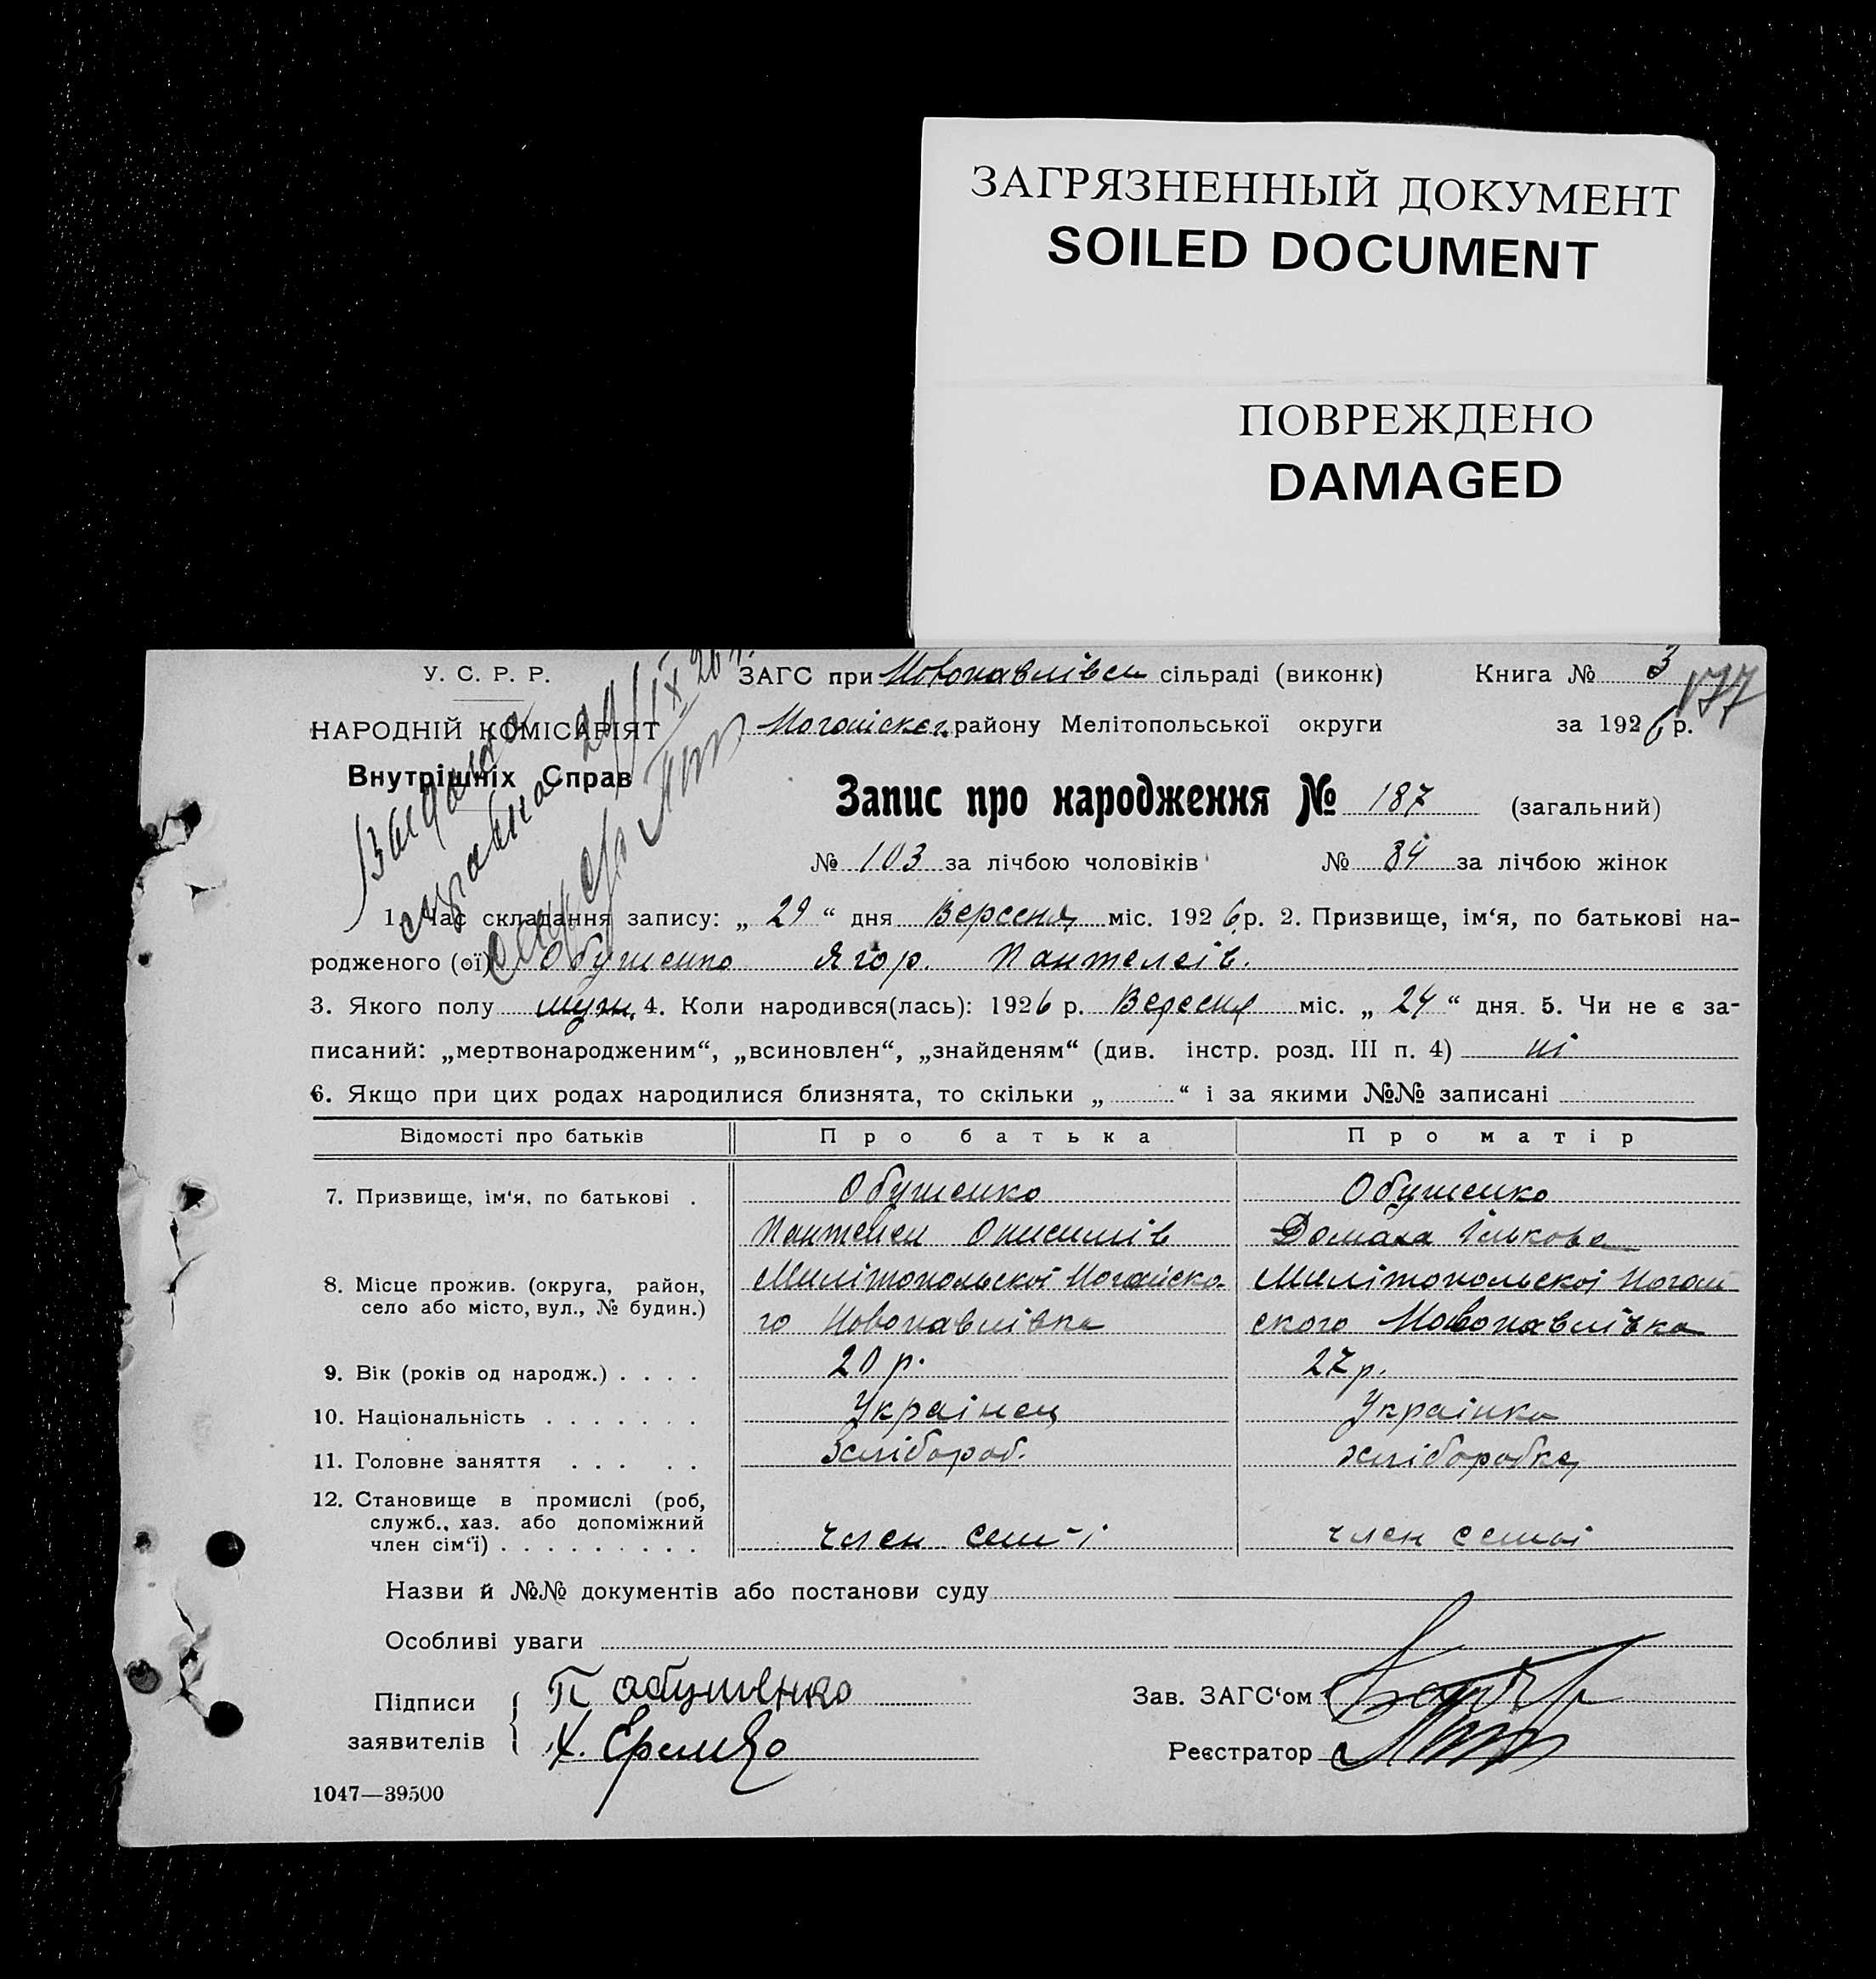 ЗАГРЯЗНЕННЫЙ ДОКУМЕНТ
SOILED DOCUMENT
ПОВРЕЖДЕНО
DAMAGED
У. С. Р. Р.
НАРОДНІЙ КОМІСАРІЯТ
Внутрішніх Справ
Видана
справка 29/IX 26 р.
ЗАГС при Новопавлівск сільраді (виконк) Книга № 3
177
Ногайског району Мелітопольської округи за 1926 р.
Запис про народження № 187 (загальний)
№ 103 за лічбою чоловіків № 84 за лічбою жінок
1. Час складання запису: „ 29 “ дня Вересня міс. 1926 р. 2. Призвище, ім‘я, по батькові на-
родженого (ої) Обушенко Ягор. Пантелеів.
3. Якого полу муж. 4. Коли народився(лась): 1926 р. Вересня міс. „ 24 “ дня. 5. Чи не є за-
писаний: „мертвонародженим“, „всиновлен“, „знайденям“ (див. інстр. розд. III п. 4) ні
6. Якщо при цих родах народилися близнята, то скільки „ “ і за якими №№ записані
Відомості про батьків Про батька Про матір
7. Призвище, ім‘я, по батькові . Обушенко Обушенко
Пантелей Онисимів Домаха Ількова
8. Місце прожив. (округа, район, село або місто, вул., № будин.) Милітопольскоі Ногайско- Милітопольскоі Ногай
го Новопавлівка ского Новопавлівка
9. Вік (років од народж.) . . . . 20 р. 27 р.
10. Національність . . . . . . . Украінец Украінка
11. Головне заняття . . . . . хлібороб. хліборобка
12. Становище в промислі (роб,
служб., хаз. або допоміжний
член сім‘ї) . . . . . . . . . член сем-і член семьі
Назви й №№ документів або постанови суду
Особливі уваги
Підписи заявителів П Обушенко
Х. Еремко
Зав. ЗАГС‘ом
Реєстратор
1047—39500